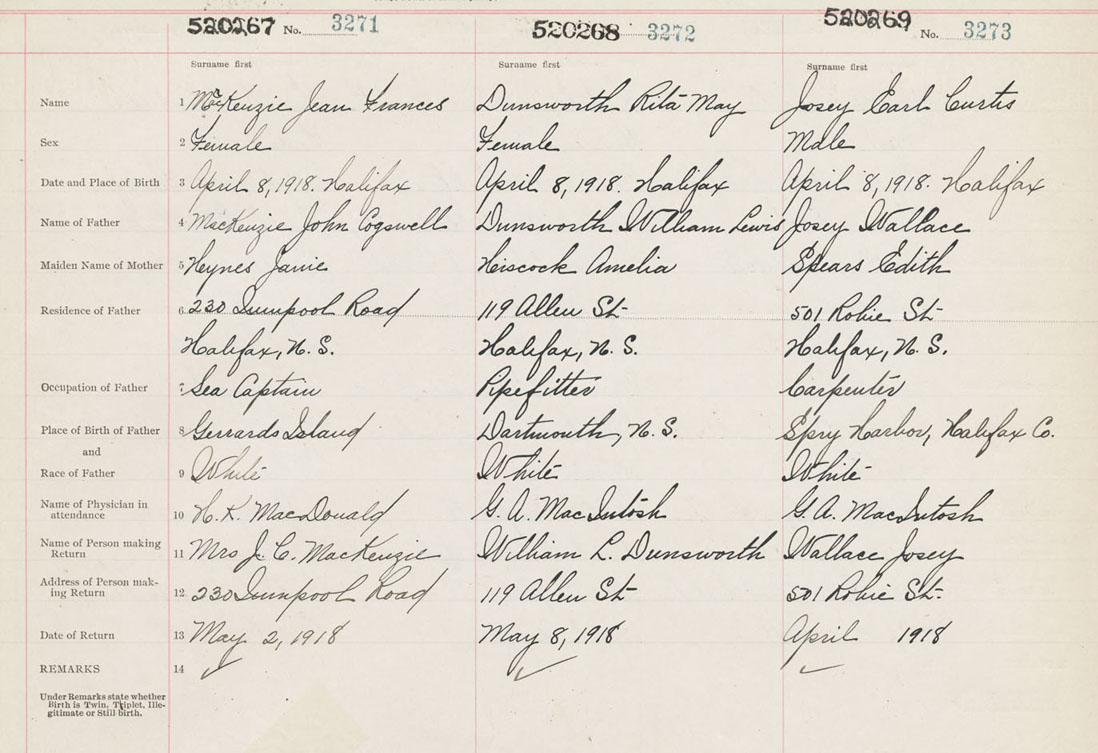 520267 No. 3271 520268 3272 520269 No. 3273
Surname first Surname first Surname first
Name 1 McKenzie Jean Frances Dunsworth Rita May Josey Earl Curtis
Sex 2 Female Female Male
Date and Place of Birth 3 April 8, 1918. Halifax April 8, 1918. Halifax April 8, 1918. Halifax
Name of Father 4 MacKenzie John Cogswell Dunsworth William Lewis Josey Wallace
Maiden Name of Mother 5 Heynes Janie Hiscock Amelia Spears Edith
Residence of Father 6 230 Road 119 Allen St 501 Robie St
Halifax, N.S. Halifax, N.S. Halifax, N.S.
Occupation of Father 7 Sea Captain Pipefitter Carpenter
Place of Birth of Father 8 Gerrards Island Dartmouth, N.S. Spry Harbor, Halifax Co.
and
Race of Father 9 White White White
Name of Physician in
attendance 10 H.K. MacDonald G.A. MacIntosh G.A. MacIntosh
Name of Person making
Return 11 Mrs J.C. MacKenzie William L. Dunsworth Wallace Josey
Address of Person mak-
ing Return 12 230 Road 119 Allen St 501 Robie St.
Date of Return 13 May 2, 1918 May 8, 1918 April 1918
REMARKS 14
Under Remarks state whether
Birth is Twin, Triplet, Ille-
gitimate or Still birth.